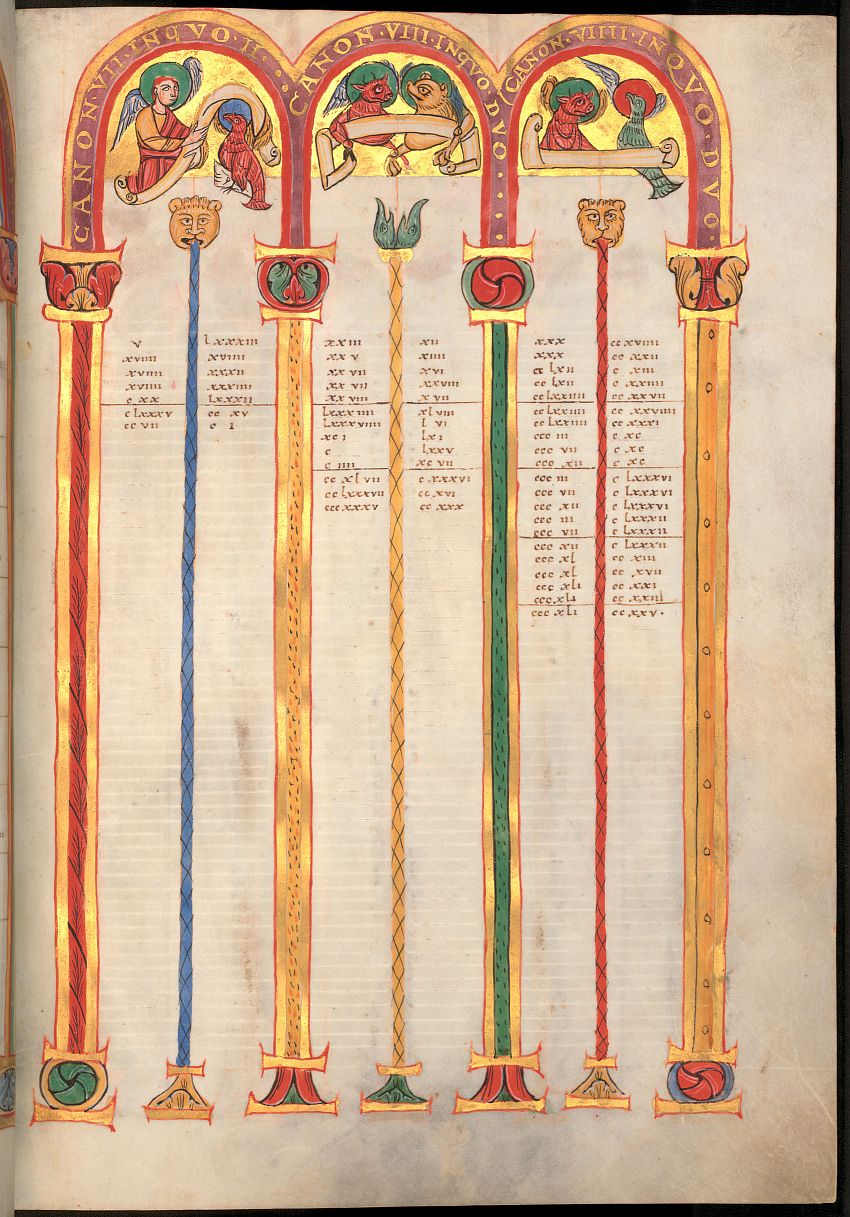 CANON·VII·INQVO·II·
v lxxxiii
xviiii xviiii
xviiii xxxii
xviiii xxxiiii
c xx lxxxii
c lxxxv cc xv
cc vii c i
CANON·VIII·INQVO DVO·
xxiii xii
xx v xiiii
xx vii xvi
xx vii xxviii
xx viii x vii
lxxx iiii xl viii
lxxx viiii l vi
xc i lxi
c lxxv
c iiii xc vii
cc xl vii c xxxvi
cc lxxxvii cc xvi
ccc xxxv cc xxx
CANON·VIIII·INQVO·DVO·
xxx cc xviiii
xxx cc xxii
cc lxii c xiii
cc lxii c xxiiii
cc lxxiiii cc xxvii
cc lxxiiii cc xxviiii
cc lxxiiii cc xxxi
ccc iii c xc
ccc vii c xc
ccc xii c xc
ccc iii c lxxxvi
ccc vii c lxxxvi
ccc xii c lxxxvi
ccc iii c lxxxii
ccc vii c lxxxii
ccc xii c lxxxii
ccc xl cc xiii
ccc xl cc xvii
ccc xli cc xxi
ccc xli cc xxiii
ccc xli cc xxv·